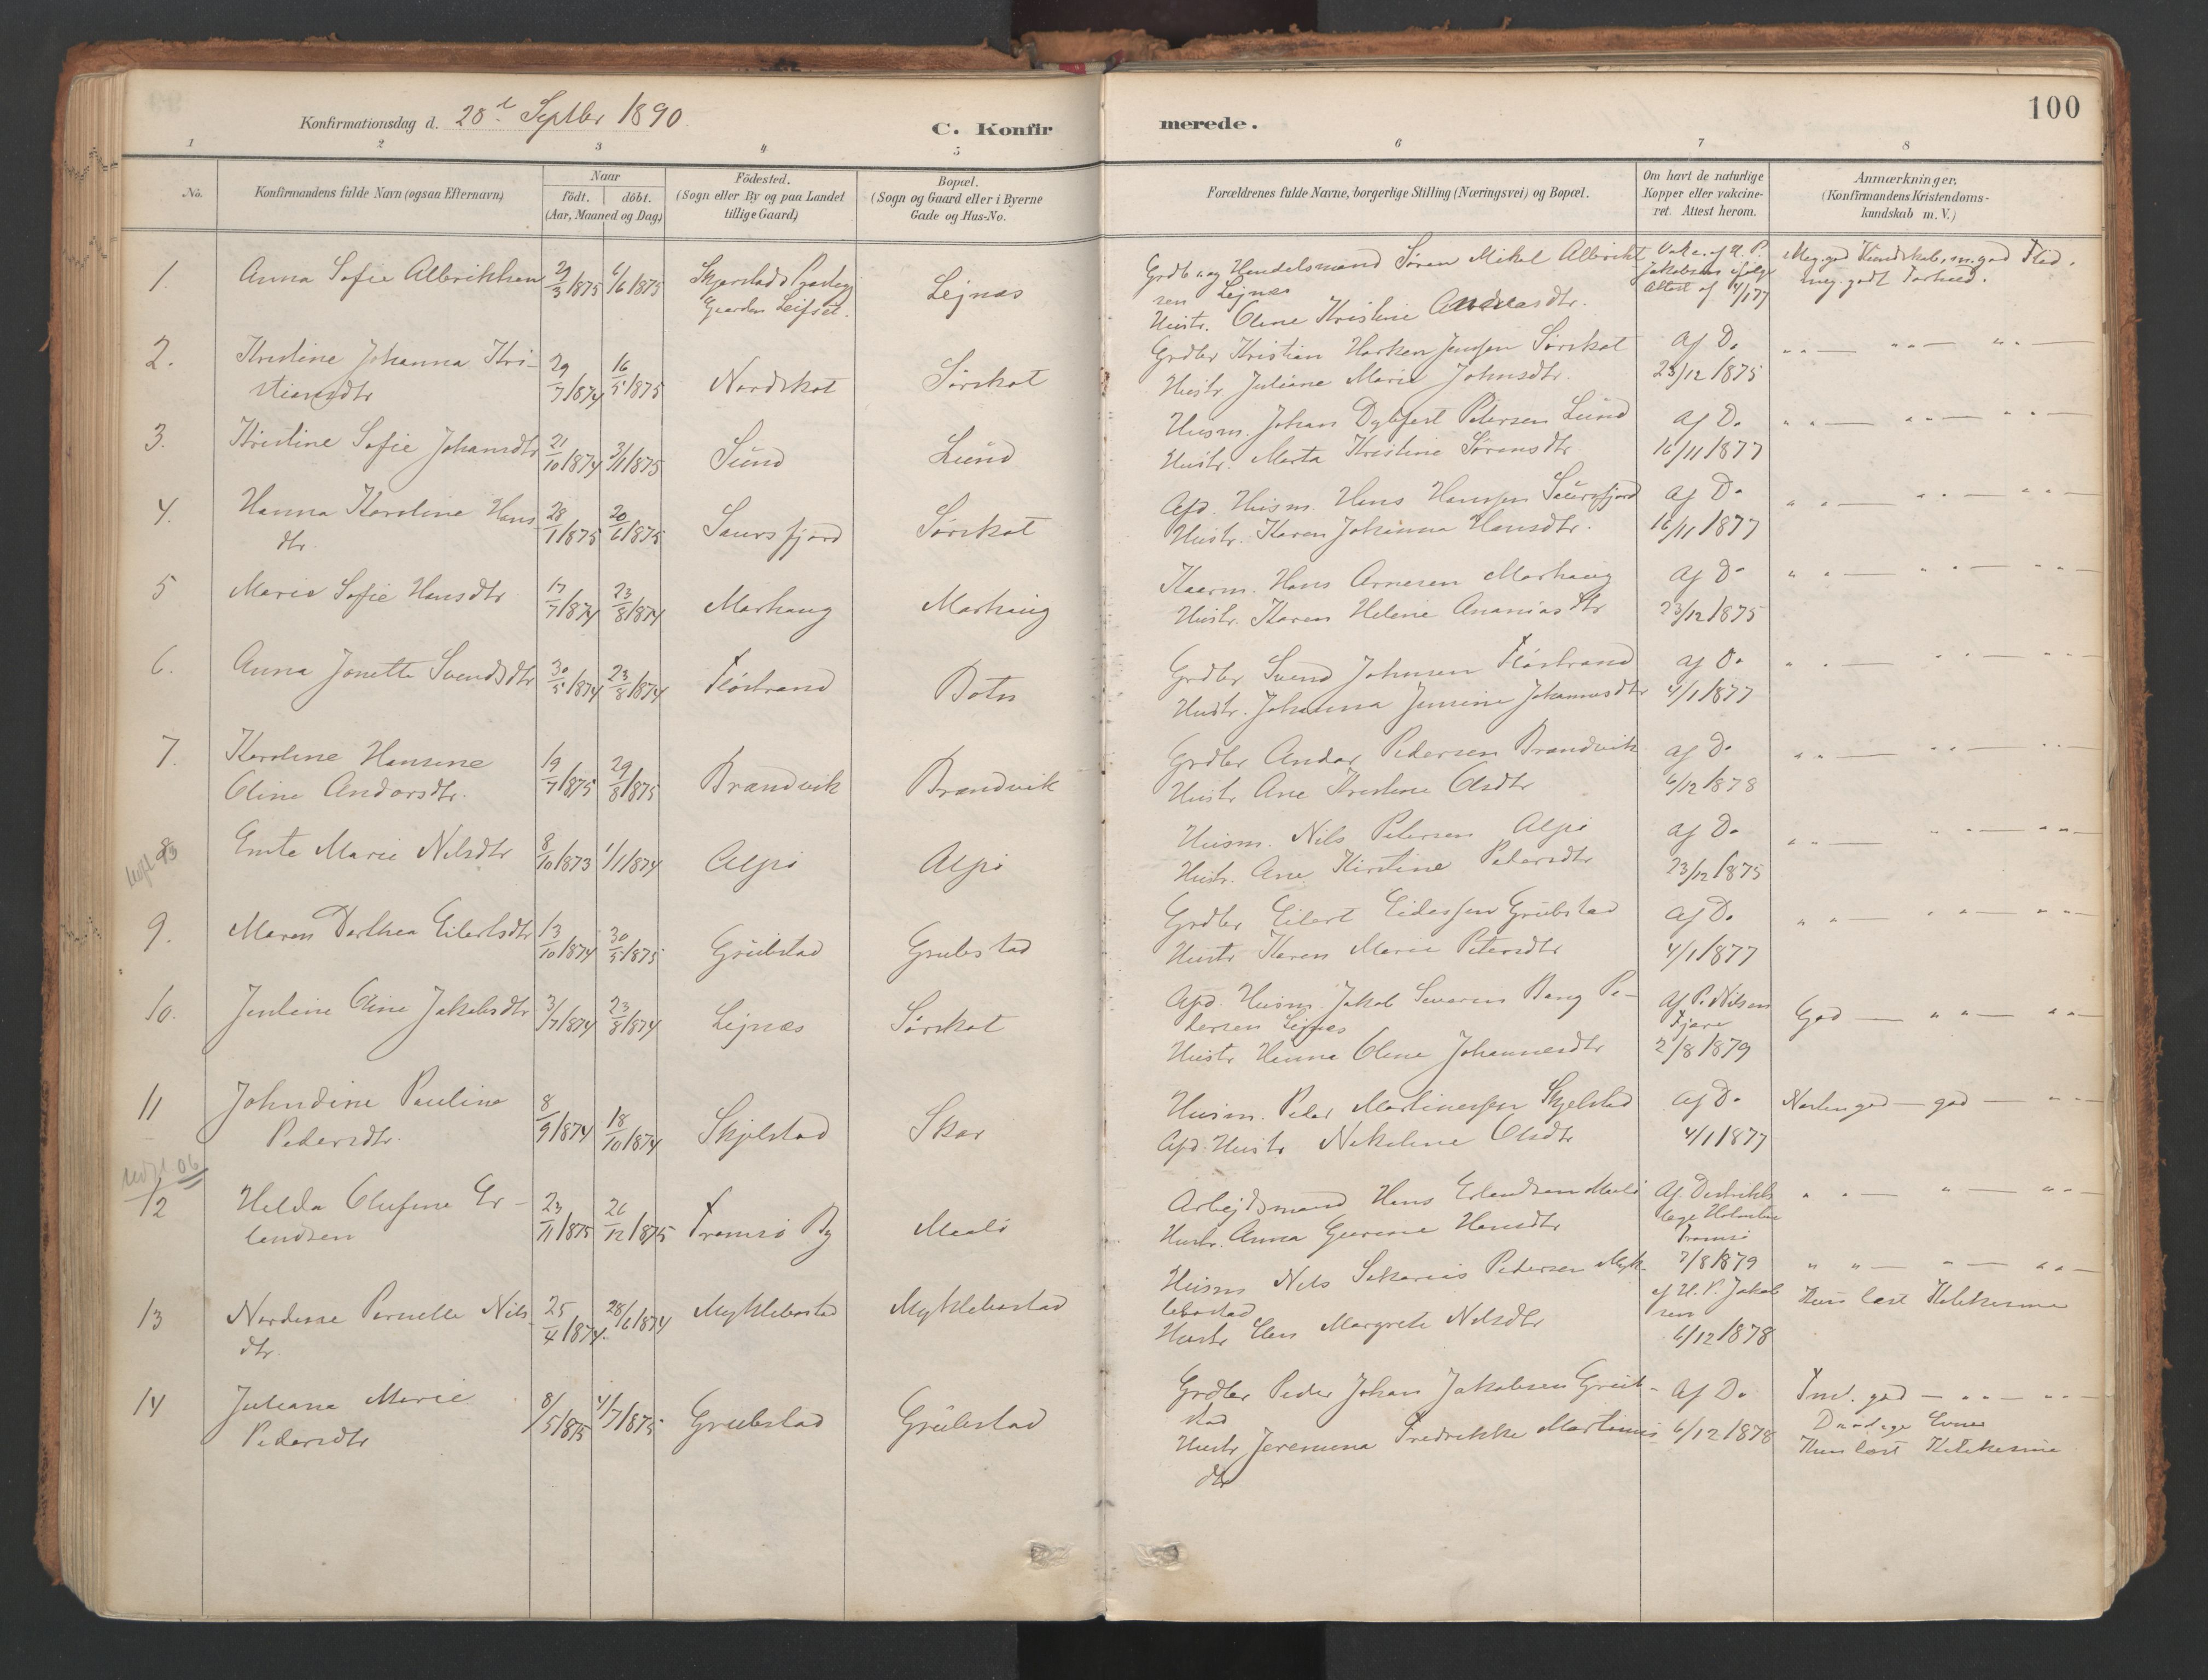 100
Konfirmationsdag d. 28de Septbr 1890
C. Konfirmerede.
1 2 3 4 5 6 7 8
No.
Konfirmandens fulde Navn (ogsaa Efternavn)
Naar
födt. döbt.
(Aar, Maaned og Dag)
Födested.
(Sogn eller By og paa Landet
tillige Gaard)
Bopæl.
(Sogn og Gaard eller i Byerne
Gade og Hus-No.
Forældrenes fulde Navne, borgerlige Stilling (Næringsvei) og Bopæl.
Om havt de naturlige
Kopper eller vakcine-
ret. Attest herom.
Anmærkninger.
(Konfirmandens Kristendoms-
kundskab m. V.)
1. Anna Sofie Albrikksen 29/3 1875 6/6 1875 Skjerstads Prgj
Gaarden Leifset. Lejnæs
Grdb. og Handelsmand Sören Mikal Albrikt
sen Lejnæs
Hustr. Oline Kristine Andreasdtr.
Vak. af H. P.
Jakobsen ifølge
Attest af 4/1 77
Meg. god Kundskab, m. god Flid.
meg. godt Forhold.
2. Kristine Johanna Kri-
stiansdtr 29/7 1874 16/5 1875 Nordskot Sörskot
Grdbr Kristian Harken Jensen Sörskot
Hustr. Juliane Marie Johnsdtr.
af Do
23/12 1875
" " — " " — " " —
3. Kristine Sofie Johansdtr 21/10 1874 3/1 1875 Sund Lund
Husm. Johan Dybfest Petersen Lund
Hustr. Marta Kristine Sörensdtr
af Do
16/11 1877
" " — " " — " " —
4. Hanna Karoline Hans
dtr. 28/1 1875 20/6 1875 Saursfjord Sörskot
Afd. Husm. Hans Hansen Saursfjord
Hustr. Karen Johanna Hansdtr.
af Do
16/11 1877
" " — " " — " " —
5 Marie Sofie Hansdtr 17/7 1874 23/8 1874 Marhaug Marhaug
Kaarm. Hans Arnesen Marhaug
Hustr. Karen Helene Ananiasdtr
af Do
23/12 1875
" " — " " — " " —
6. Anna Jonette Svendsdtr 30/5 1874 23/8 1874 Flöstrand Botn
Grdbr Svend Johnsen Flöstrand
Hustr. Johanna Jensine Johannesdtr
af Do
4/1 1877
" " — " " — " " —
7. Karoline Hansine
Oline Andorsdtr. 19/7 1875 29/8 1875 Brandvik Brandvik
Grdbr Andor Pedersen Brandvik
Hustr Ane Kristine Olsdtr
af Do
6/12 1878
" " — " " — " " —
8 Emte Marie Nilsdtr 8/10 1873 1/1 1874 Alpö Alpö
Husm. Nils Petersen Alpö
Hustr. Ane Kirstine Pedersdtr
af Do
23/12 1875
" " — " " — " " —
9. Maren Dorthea Eilertsdtr 13/10 1874 30/5 1875 Grübstad Grubstad
Grdbr Eilert Eidessen Grübstad
Hustr Karen Marie Petersdtr
af Do
4/1 1877
" " — " " — " " —
10. Jentine Oline Jakobsdtr 3/7 1874 23/8 1874 Lejnæs Sörskot
Afd. Husm. Jakob Severin Bang Pe-
dersen Lejnæs
Hustr Hanna Oline Johannesdtr
af P. Nilsen
Fjære
2/8 1879
God — " " — " " —
11 Johndine Pauline
Pedersdtr. 8/9 1874 18/10 1874 Skjelstad Skar
Husm. Peder Martinussen Skjelstad
Afd. Hustr Nikoline Olsdtr
af Do
4/1 1877
Næsten god — god — " " —
udfl 06
12 Hilda Olufine Er-
landsen 23/11 1875 26/12 1875 Tromsö By Maalö
Arbejdsmand Hans Erlandsen Maalö
Hustr. Anna Gurine Hansdtr
Af Distrikts
læge Holmboe
Tromsö
7/8 1879
" " — " — " " —
13 Nordine Pernelle Nils
dtr. 25/4 1874 28/6 1874 Myklebostad Myklebostad
Husm Nils Sakarias Pedersen Myk-
lebostad
Hustr Elen Margrete Nilsdtr
af H. P. Jakob
sen
6/12 1878
" " — " — " " —
Kun læst Katekesime
14 Juliana Marie
Pedersdtr 8/5 1875 4/7 1875 Grübstad Grübstad
Grdbr Peder Johan Jakobsen Grüb-
stad
Hustr Jeremina Fredrikke Martinus
dtr
af Do
6/12 1878
Tml. god — " " — " "
Daarlige Evner
Kun læst Katekesime